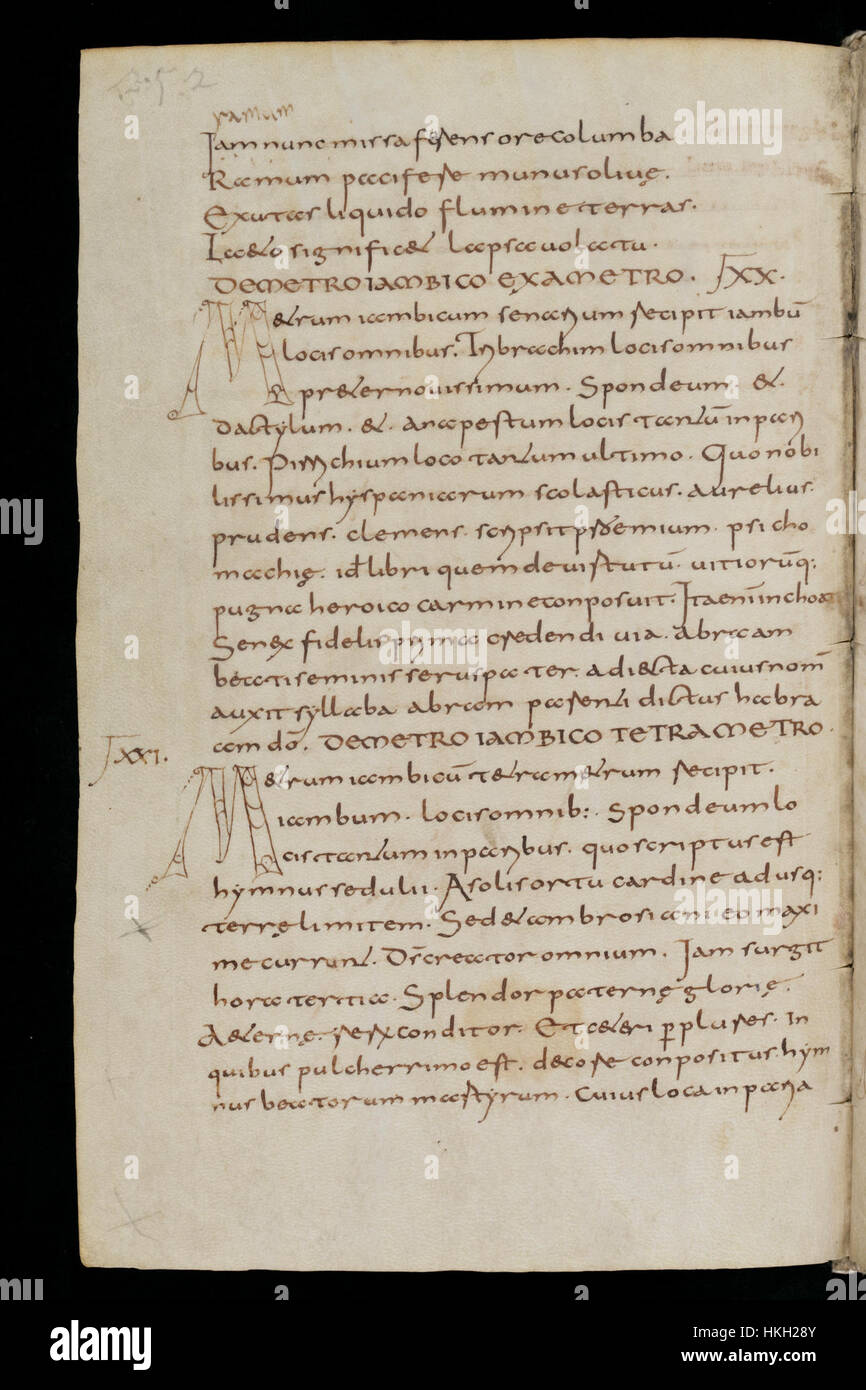 252
ramum
Iam nunc missa ferens ore columba
Ramum pacifere munus olivę.
Exutas liquido flumine terras.
Laeto significet lapsa uolatu.
DE METRO IAMBICO EXAMETRO. XX.
Metrum iambicum senarium recipit iambū
locis omnibus. Tribrachim locis omnibus
preter nouissimum. Spondeum. et.
dactylum. et. anapestum locis tantū in pari
bus. Pirrichium loco tantum ultimo. Quo nobi
lissimus hyspaniarum scolasticus. aurelius.
prudens. clemens. scripsit proemium. psicho
machię. id libri quem de uirtutū. uitiorūq;
pugna heroico carmine conposuit. Ita enī inchoa
Senex fidelis prima credendi uia. abraam
beati seminis serus pater. adiecta cuius nom
auxit syllaba abram parenti dictus habra
am dō. DE METRO IAMBICO TETRAMETRO.
XXI.
Metrum iambicū tetrametrum recipit.
iambum. locis omnib;. Spondeum lo
cis tantum in paribus. quo scriptus est
hymnus sedulii. A solis ortu cardine adusq;
terrę limitem. Sed et ambrosiani eo maxi
me currunt. Ds creator omnium. Iam surgit
hora tertia. Splendor paternę glorię.
Aeterne. rerum conditor. Et ceteri perplures. In
quibus pulcherrimo est. decore conpositus hym
nus beatorum martyrum. Cuius loca in paria
alamy
Image ID: HKH28Y
www.alamy.com